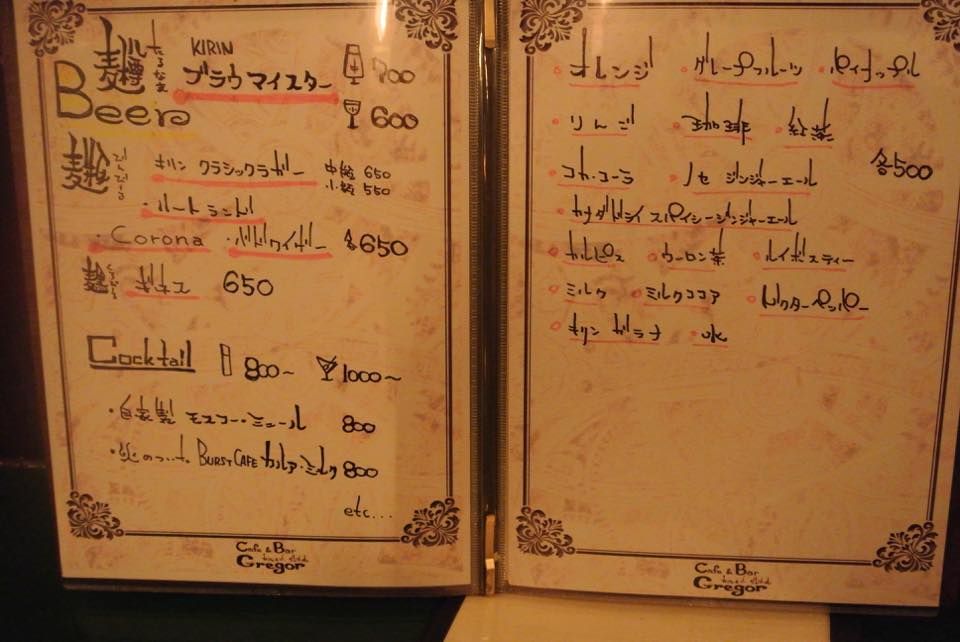 樽 たるなま
KIRIN
ブラウマイスター 700
Beer 600
びんびーる
キリン クラシックラガー 中瓶 650
小瓶 550
・ハートランド
・Corona ・バドワイザー 各650
ギネス 650
Cocktail 800~ 1000~
・自家製 モスコー・ミュール 800
・炎のついた。BURST CAFE カルア・ミルク 800
etc...
Cafe & Bar
Gregor
・オレンジ ・グレープフルーツ ・パイナップル
・りんご ・珈琲 ・紅茶
各500
・コカ・コーラ ・ノセ ジンジャーエール
・カナダドライ スパイシージンジャーエール
・カルピス ・ウーロン茶 ・ルイボスティー
・ミルク ・ミルクココア ・ドクターペッパー
・キリン ガラナ ・水
Cafe & Bar
Gregor